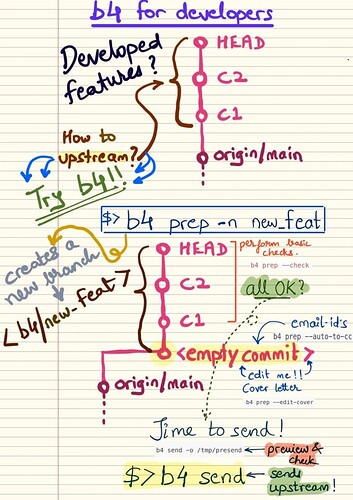 b4 for developers
Developed
features?
HEAD
C2
C1
origin/main
How to
upstream?
Try b4!!
$> b4 prep -n new_feat
creates a
new branch
<b4/new_feat>
HEAD
C2
C1
<empty commit>
origin/main
perform basic
checks.
b4 prep --check
all OK?
email-id's
b4 prep --auto-to-cc
edit me!!
Cover letter
b4 prep --edit-cover
Time to send!
b4 send -o /tmp/presend
preview &
check
$> b4 send
sends
upstream!